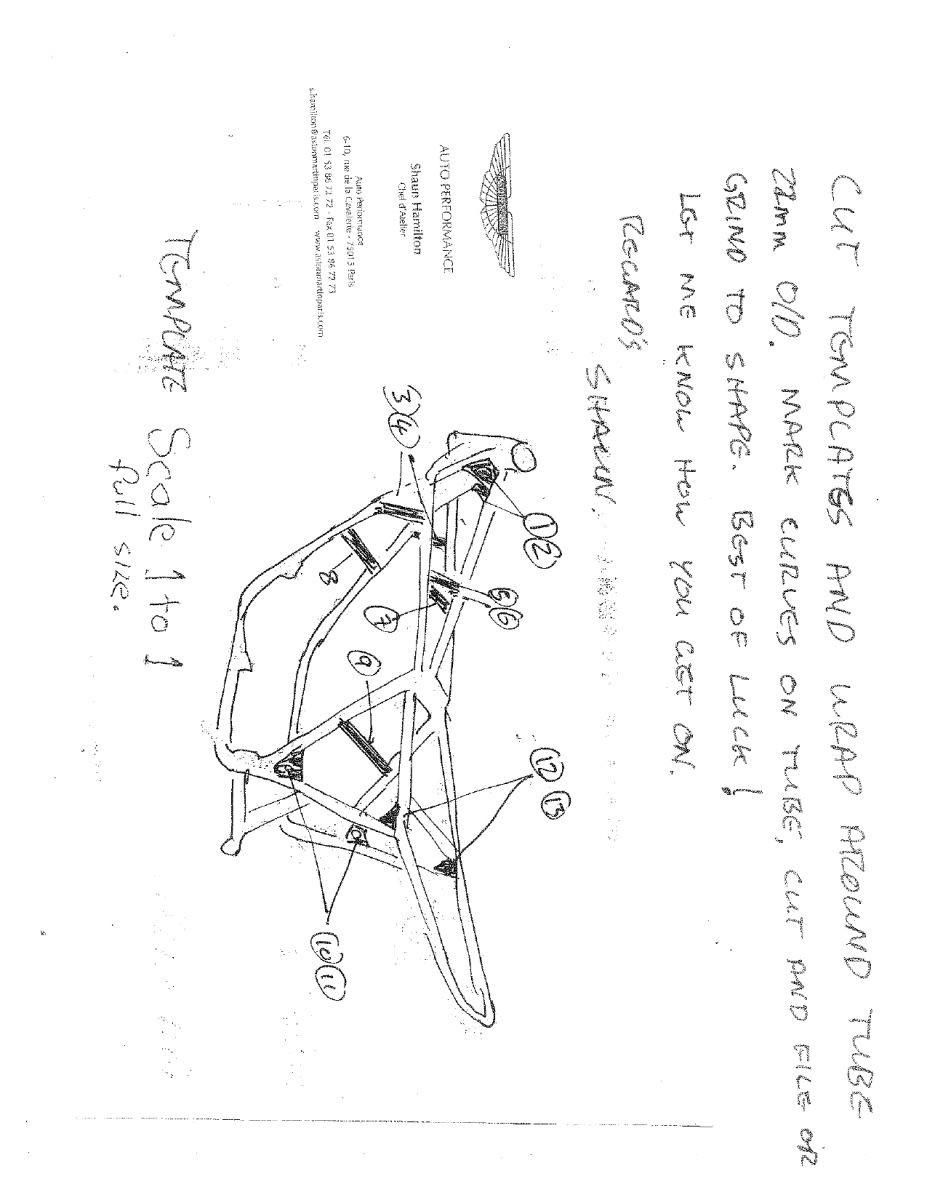 CUT TEMPLATES AND WRAP AROUND TUBE
22mm O/D. MARK CURVES ON TUBE, CUT AND FILE OR
GRIND TO SHAPE. BEST OF LUCK!
LET ME KNOW HOW YOU GET ON.
REGARD'S
SHAUN.
AUTO PERFORMANCE
Shaun Hamilton
Chef d'Atelier
Auto Performance
6-10, rue de la Cavalerie - 75015 Paris
Tél. 01 53 86 72 72 - Fax 01 53 86 72 73
s.hamilton@astonmartinparis.com www.astonmartinparis.com
1 2
3 4
5 6
7
8
9
12 13
10 11
TEMPLATE Scale 1 to 1
full size.